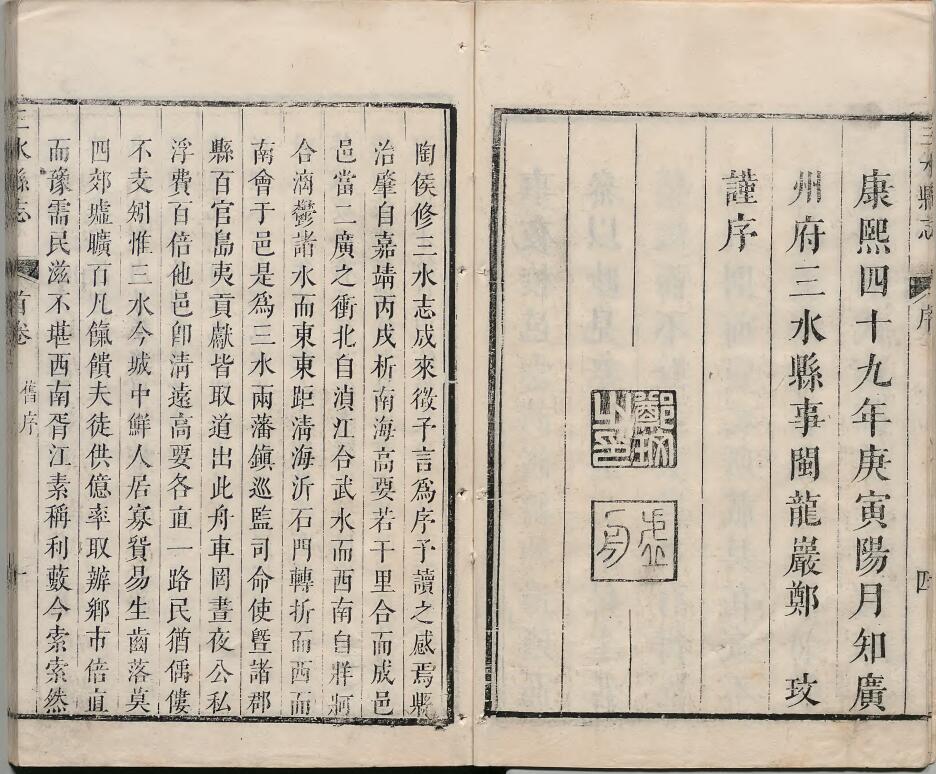 三水縣志
序
四
康熙四十九年庚寅陽月知廣
州府三水縣事閩龍巖鄭玫
謹序
鄭玫之印
陶侯修三水志成來徵予言爲序予讀之感焉縣
治肇自嘉靖丙戌析南海高要若干里合而成邑
邑當二廣之衝北自湞江合武水而西南自牂牁
合漓鬱諸水而東東距清海沂石門轉折而西而
南會于邑是爲三水兩藩鎮巡監司命使曁諸郡
縣百官島夷貢獻皆取道出此舟車罔晝夜公私
浮費百倍他邑卽清遠高要各直一路民猶傴僂
不支矧惟三水今城中鮮人居寡貿易生齒落莫
四郊墟曠百凡餼饋夫徒供億率取辦鄉市倍直
而豫需民滋不堪西南胥江素稱利藪今索索然
三水縣志
首卷
舊序
一